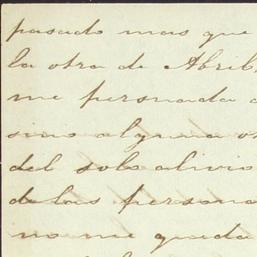 pasado mas que
la otra de Abril,
me persuada a
sino alguna
del solo alivio
de las persona
no me queda